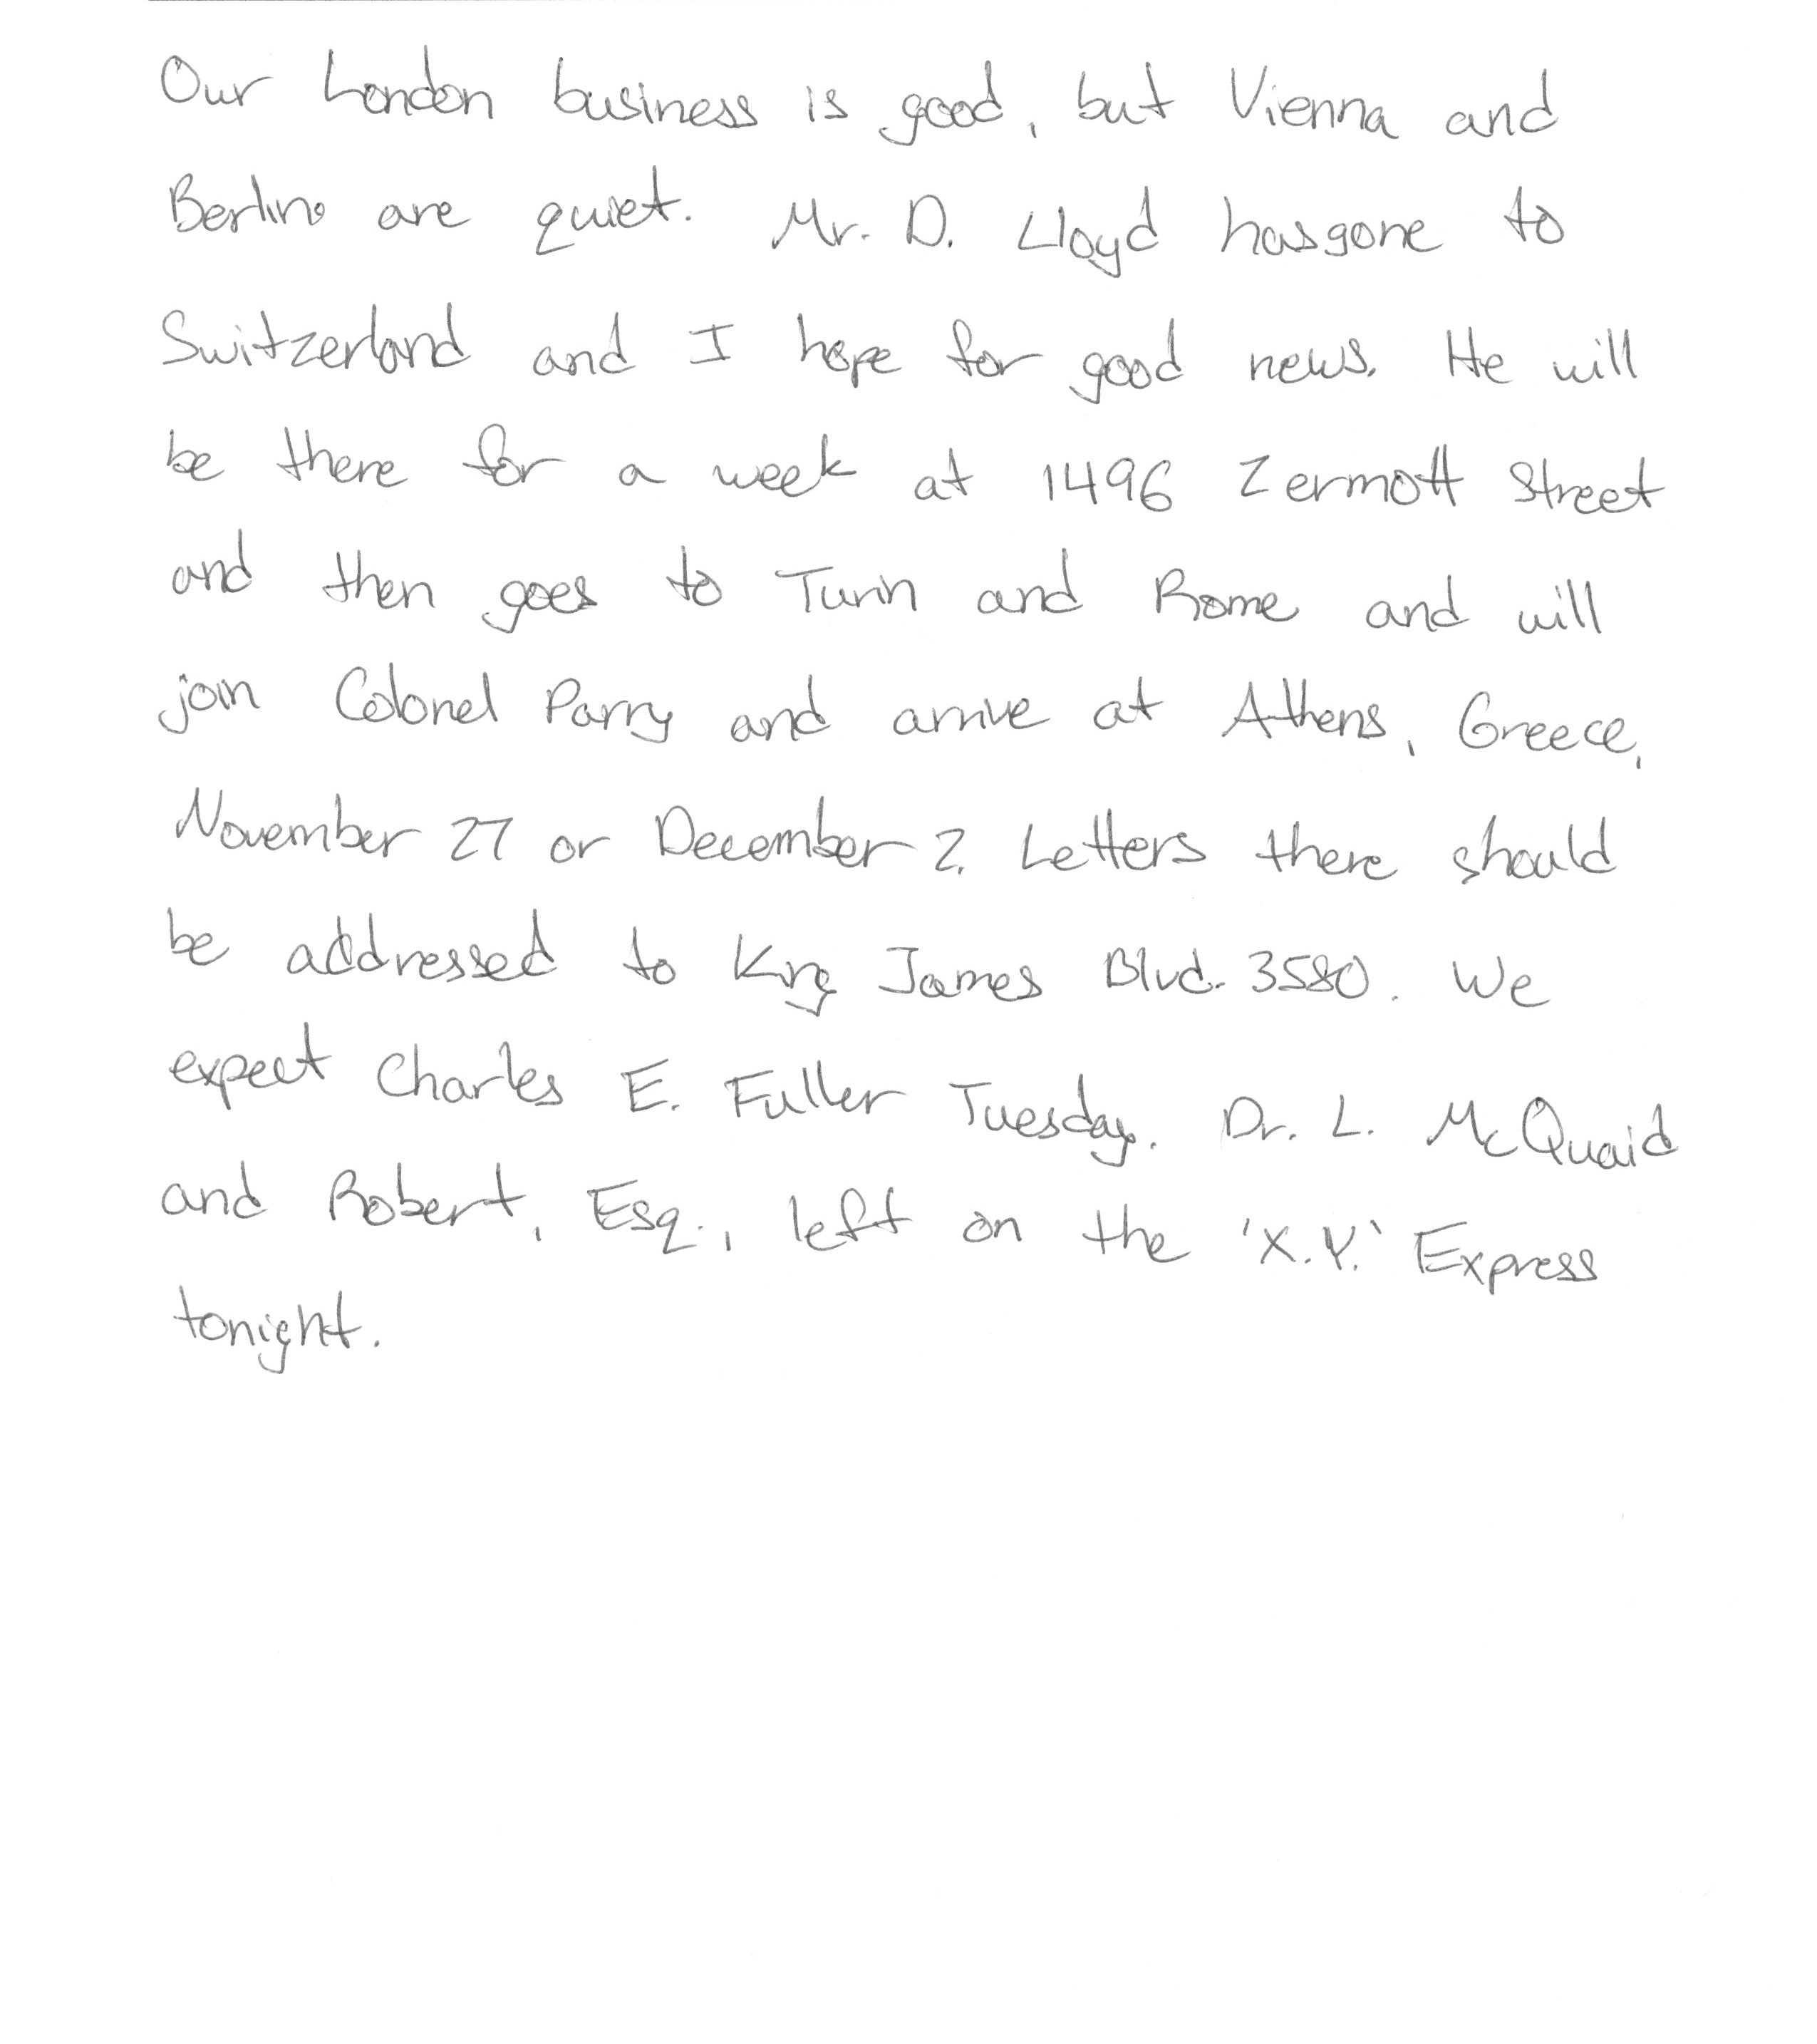 Our London business is good, but Vienna and
Berlino are quiet. Mr. D. Lloyd has gone to
Switzerland and I hope for good news. He will
be there for a week at 1496 Zermott Street
and then goes to Turin and Rome and will
join Colonel Parry and arrive at Athens, Greece,
November 27 or December 2. Letters there should
be addressed to King James Blvd. 3580. We
expect Charles E. Fuller Tuesday. Dr. L. McQuaid
and Robert, Esq., left on the 'X.Y.' Express
tonight.